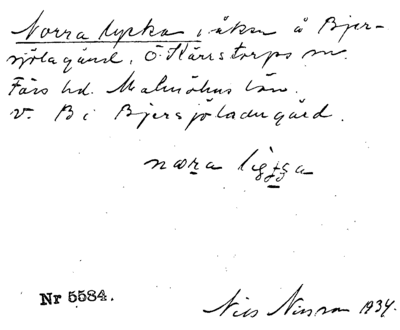 Norra lycka, åker å Bjer-
sjölagård, Ö. Kärrstorps sn.
Färs hd. Malmöhus län.
v. B i Bjersjöladugård.
nora ligga
Nr 5584.
Nils Nilsson 1934.